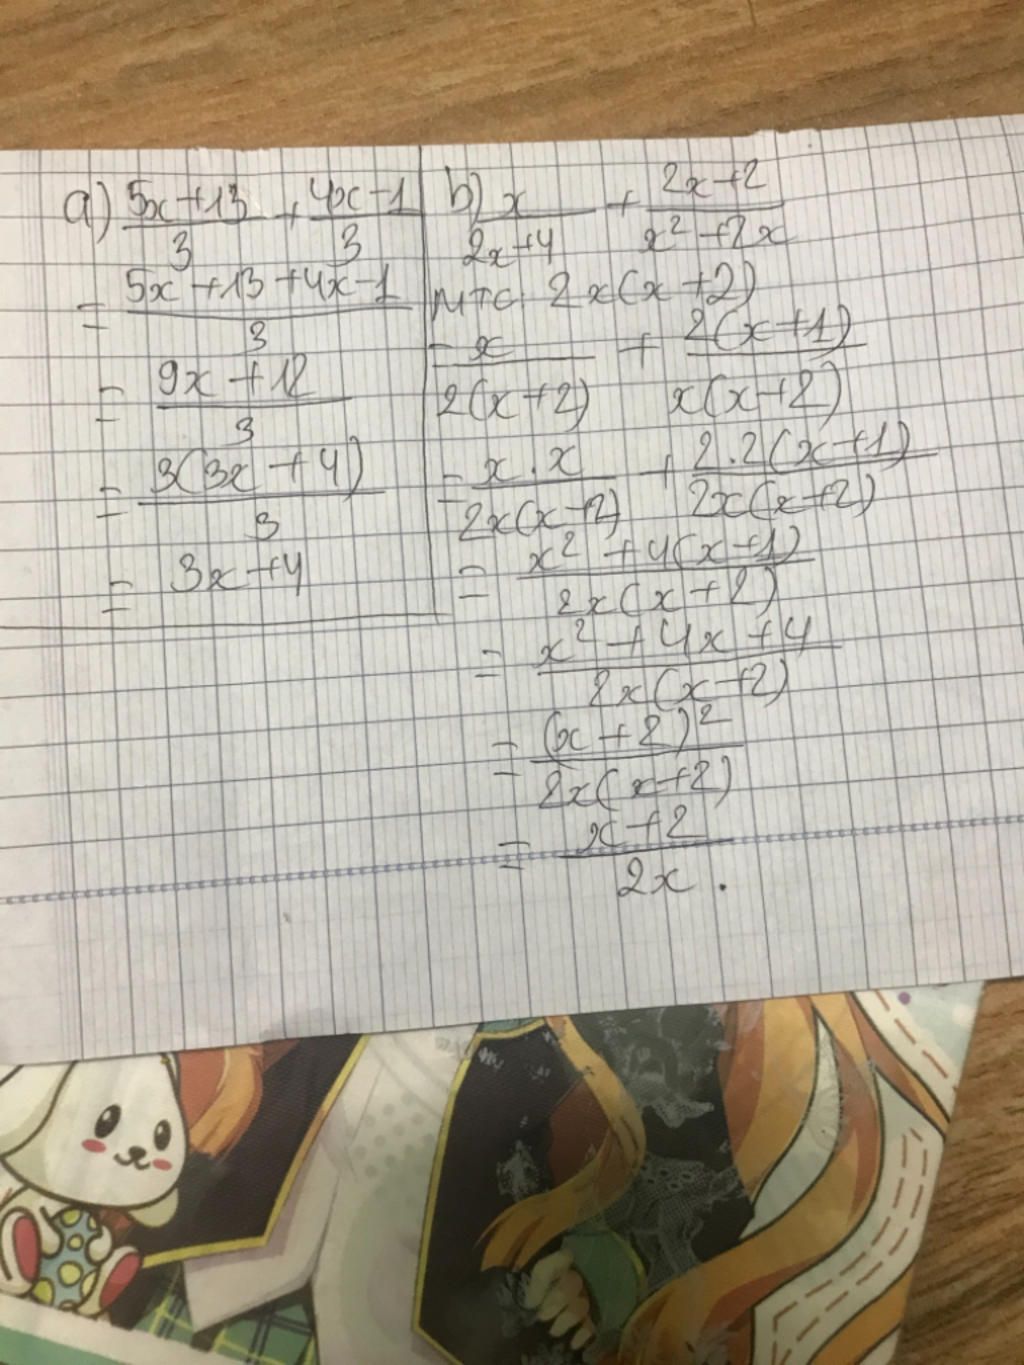 a) (5x+13)/3 + (4x-1)/3
= (5x+13+4x-1)/3
= (9x+12)/3
= 3(3x+4)/3
= 3x+4
b) x/(2x+4) + (2x+2)/(x²+2x)
MTC: 2x(x+2)
= x/(2(x+2)) + 2(x+1)/(x(x+2))
= x.x/(2x(x+2)) + 2.2(x+1)/(2x(x+2))
= (x²+4(x+1))/(2x(x+2))
= (x²+4x+4)/(2x(x+2))
= (x+2)²/(2x(x+2))
= (x+2)/(2x) .